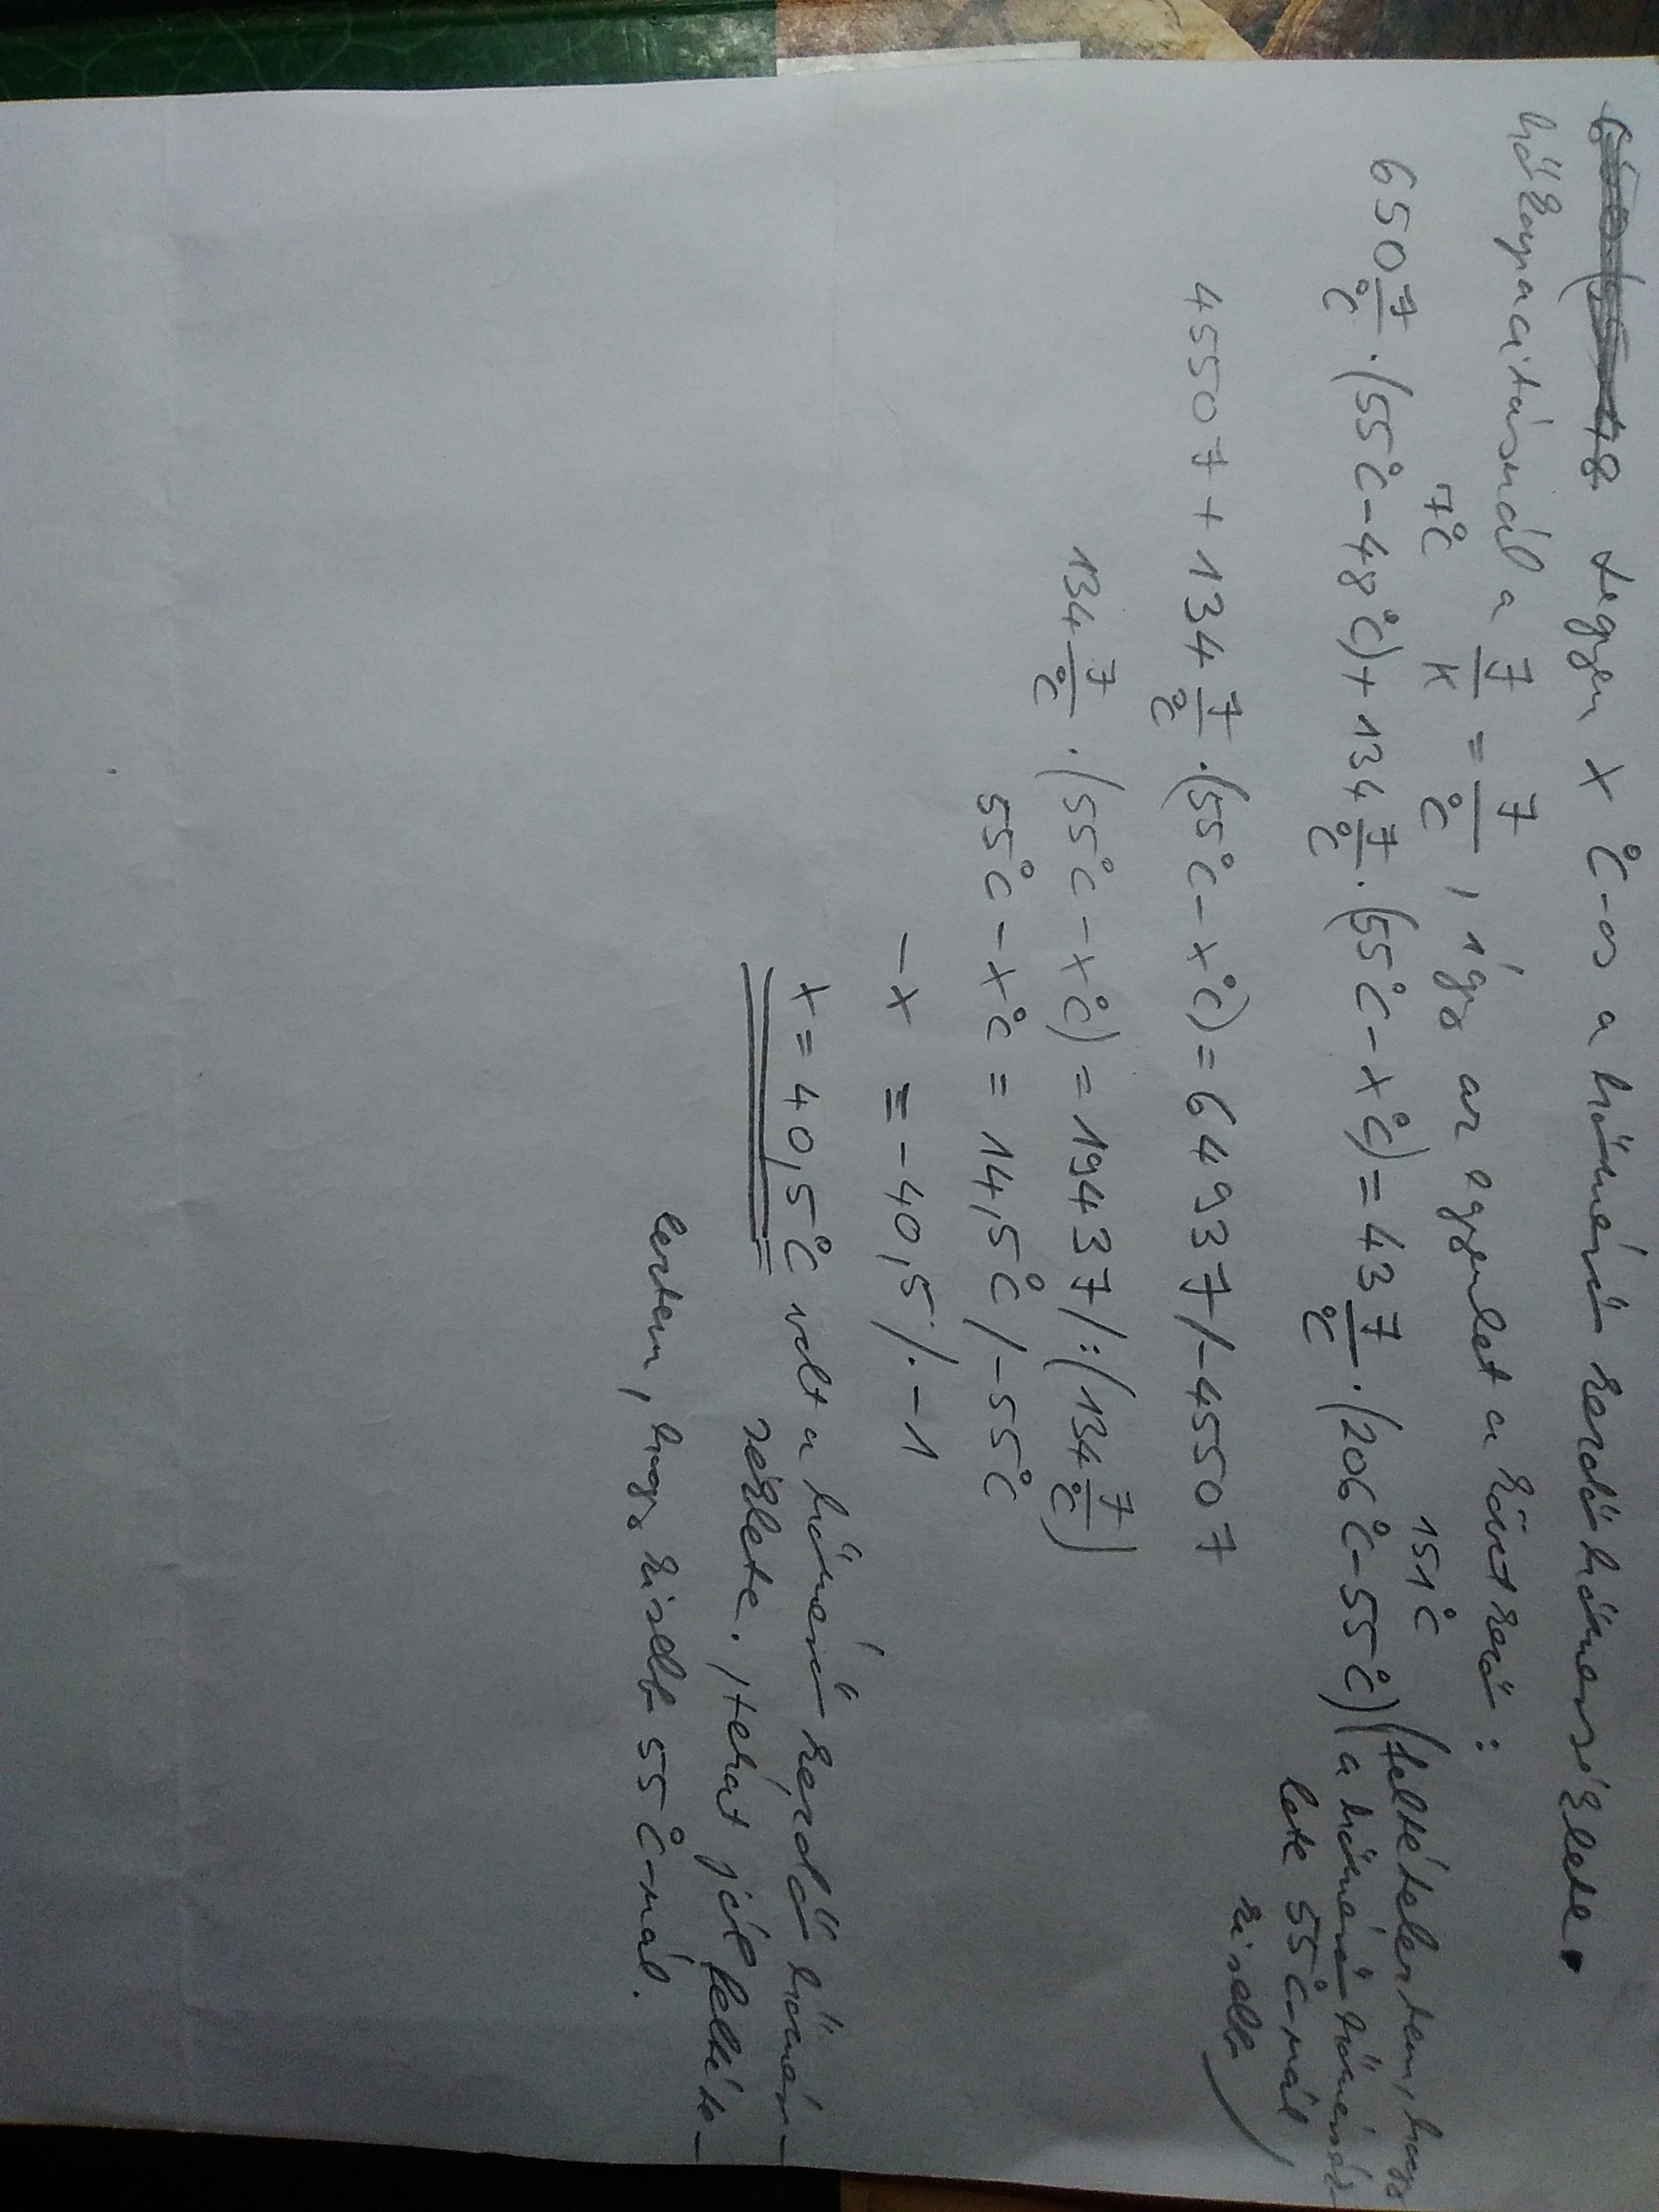 Legyen x °C-os a hőmérő kezdő hőmérséklete.
hőkapacitásnál a J/K = J/°C, így az egyenlet a következő:
7°C 151°C
650 J/°C · (55°C - 48°C) + 134 J/°C · (55°C - x°C) = 43 J/°C · (206°C - 55°C) (feltételeztem, hogy
a hőmérő hőmérsék-
lete 55°C-nál
kisebb)
4550 J + 134 J/°C · (55°C - x°C) = 6493 J /-4550 J
134 J/°C · (55°C - x°C) = 1943 J /:(134 J/°C)
55°C - x°C = 14,5°C /-55°C
-x = -40,5 /· -1
x = 40,5°C volt a hőmérő kezdő hőmér-
séklete, tehát jól feltéte-
leztem, hogy kisebb 55°C-nál.